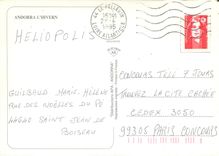 ANDORRA L'HIVERN
44 LE PELLERIN
LOIRE ATLANTIQUE
HELIOPOLIS
GUILBAUD MARIE-HELENE
RUE DES NOËLLES DU PÉ
44640 SAINT JEAN DE
BOISEAU
CONCOURS TÉLÉ 7 JOURS
TROUVEZ LA CITÉ CACHÉE
CEDEX 3050
99305 PARIS CONCOURS